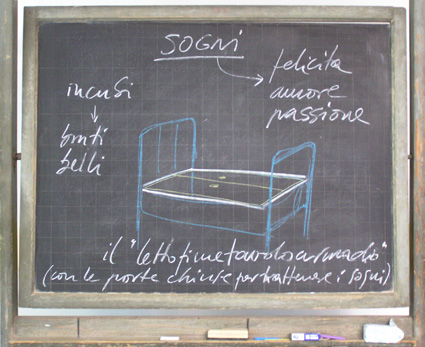 SOGNI
felicita
amore
passione
incubi
brutti
belli
il "lettofinetavoloarmadio"
(con le porte chiuse per trattenere i sogni)